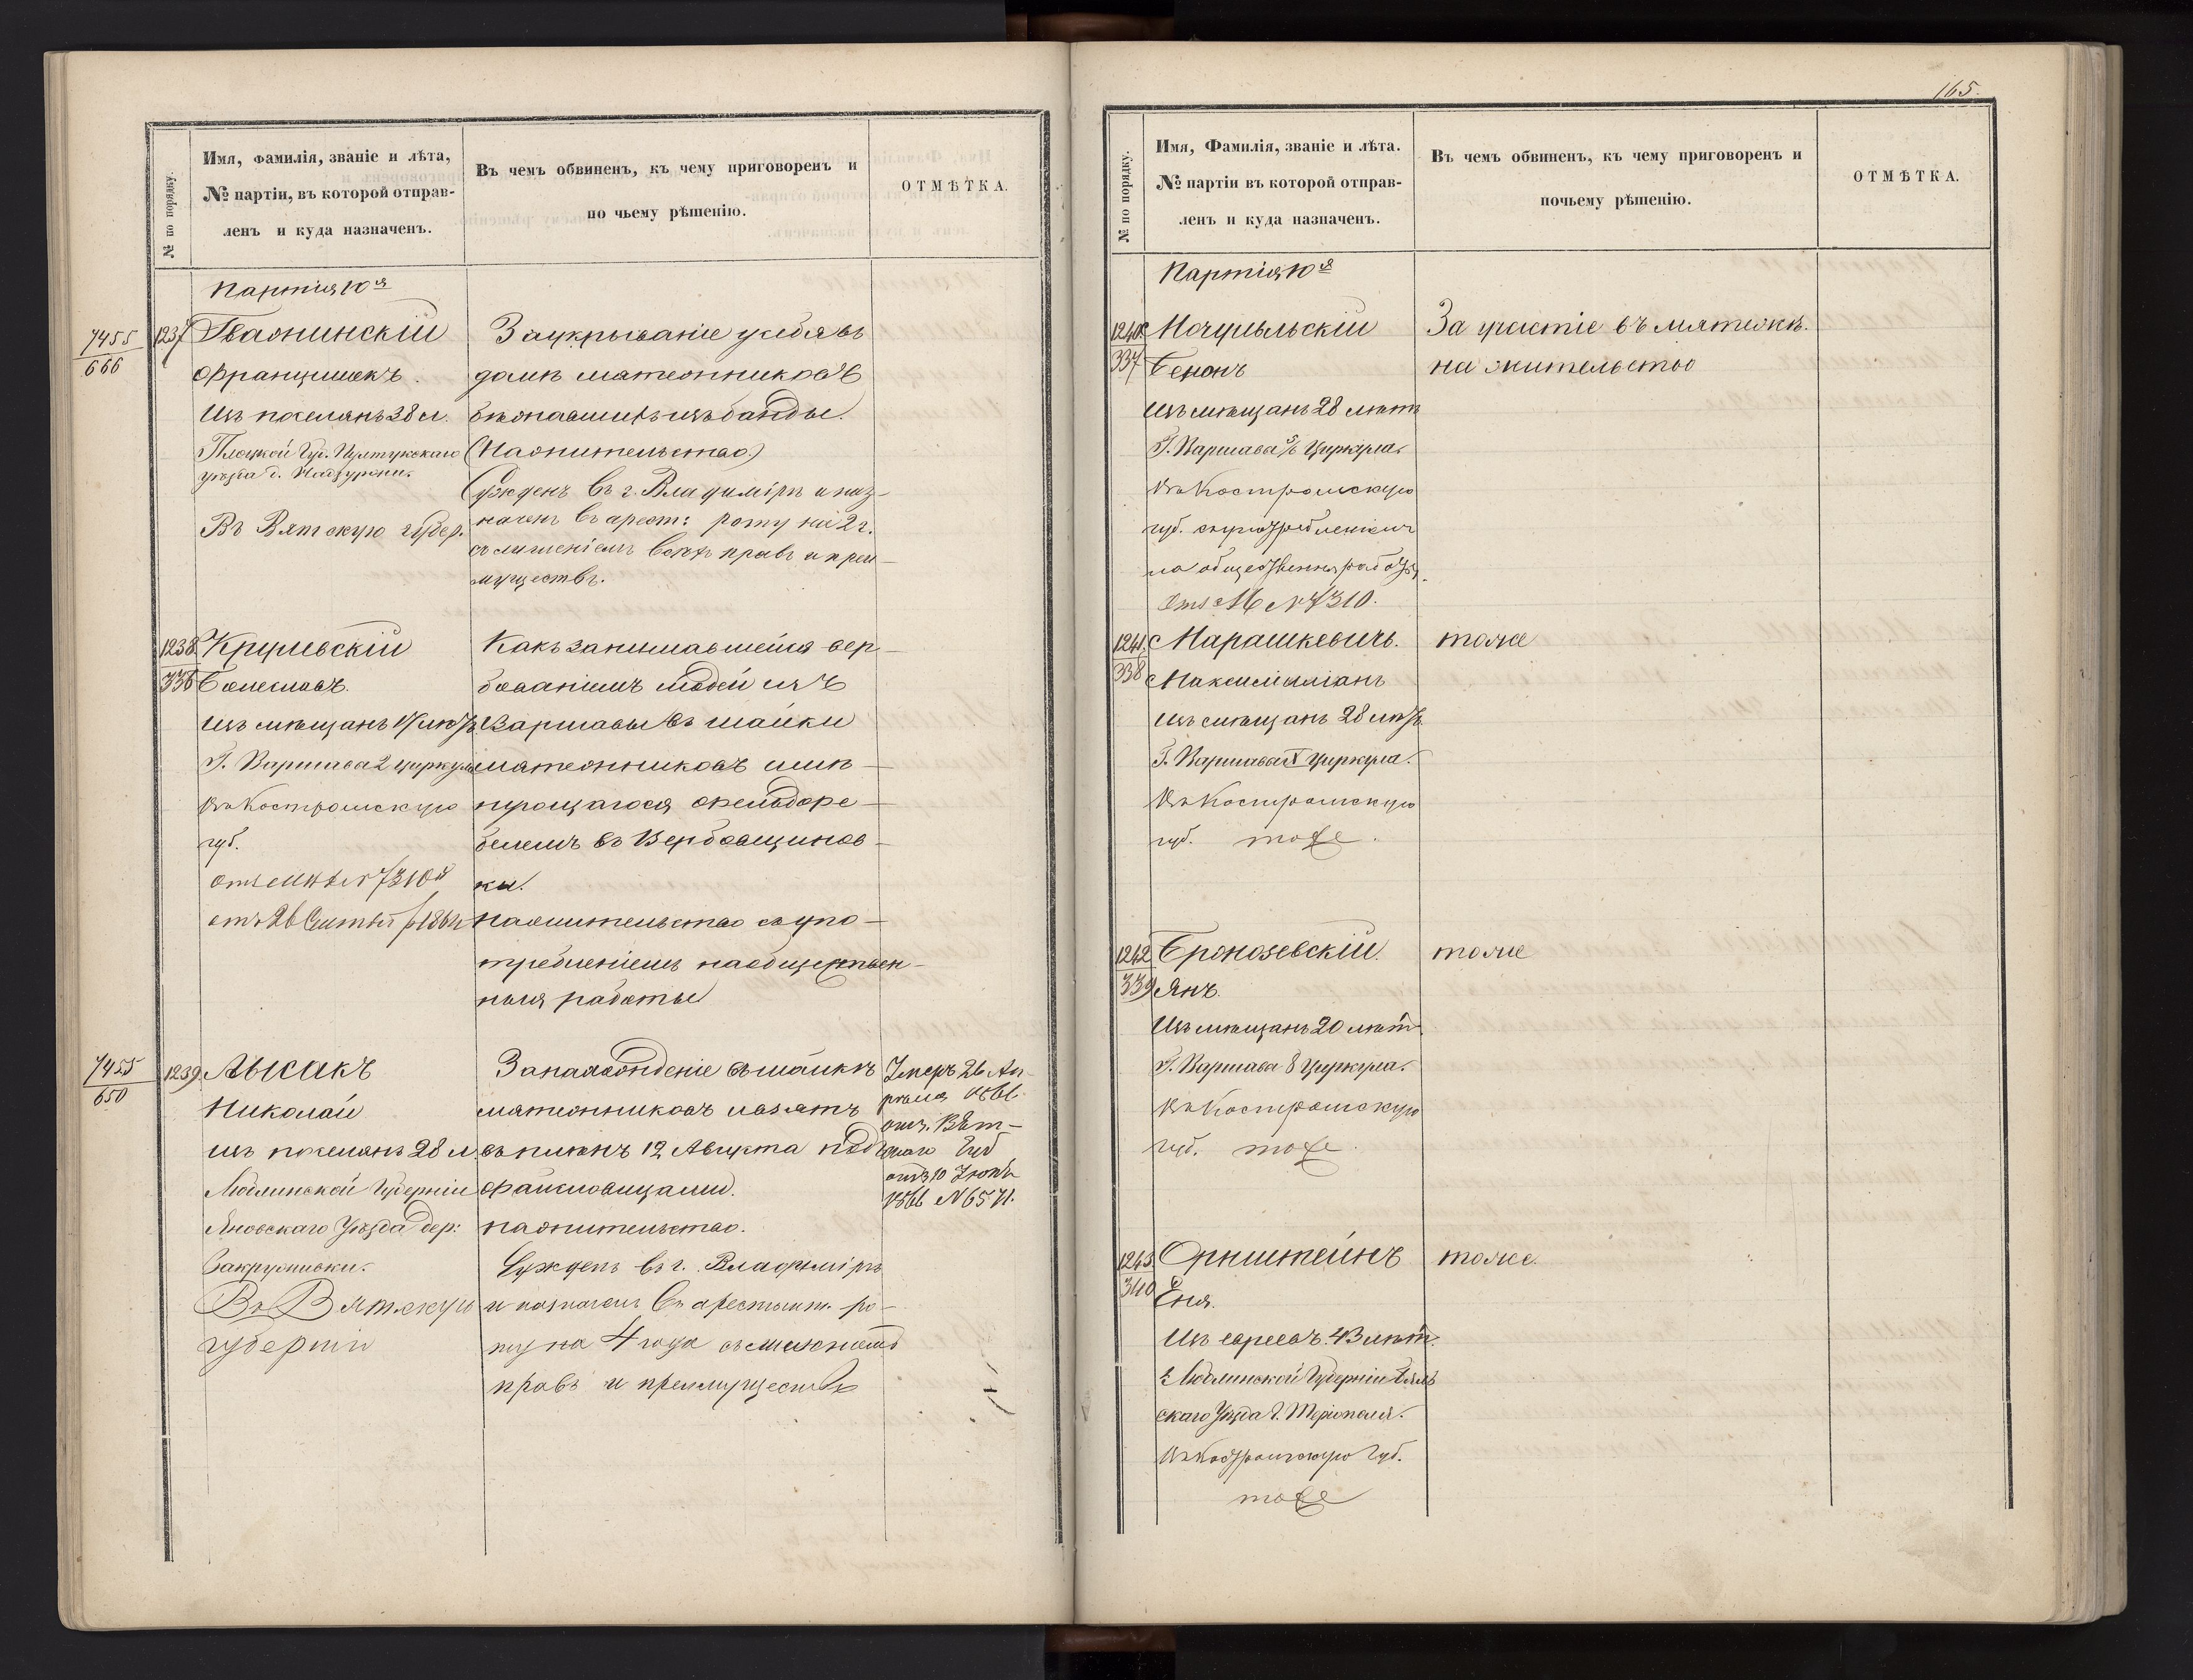 № по порядку.
Имя, Фамилія, званіе и лѣта,
№ партіи, въ которой отправ-
ленъ и куда назначенъ.
Въ чемъ обвиненъ, къ чему приговоренъ и
по чьему рѣшенію.
ОТМѢТКА.
Партія 10я
7455
666
1237
Гважинскій
Францишекъ.
Изъ поселянъ 38 л.
Плоцкой Губ. Пултускаго
уѣзда д.
Въ Вятскую губер.
За укрываніе у себя въ
домѣ мятежниковъ
бѣжавшихъ изъ банды.
(На жительство)
Сужденъ въ г. Владимірѣ и наз-
наченъ въ арест: роту на 2 г.
съ лишеніемъ всѣхъ правъ и преи-
муществъ.
1238
336
Крулевскій
Болеславъ.
изъ мѣщанъ 17 лѣтъ
Г. Варшава 2 циркула
Въ Костромскую
губ.
7310й
отъ 26 1864
Какъ занимавшейся вер-
бованіемъ людей изъ
Варшавы въ шайки
мятежниковъ имѣ-
ющагося
въ
ки.
на жительство съ упо-
требленіемъ на обществен-
ныя работы
7455
650
1239.
Лысакъ
Николай
изъ поселянъ 28 л.
Люблинской Губерніи
Яновскаго Уѣзда дер:
Въ Вятскую
губернію
За нахожденіе въ шайкѣ
мятежниковъ и взятъ
въ плѣнъ 12 Августа подъ
Файсловицами.
на жительство.
Сужденъ въ г. Владимірѣ
и назначенъ въ арестант. ро-
ту на 4 года съ лишеніемъ
правъ и преимуществъ
Умеръ 26 Ап-
рѣля 1866
отн. Вят-
скаго Губ
отъ 10 Іюня
1866 № 6571.
165.
№ по порядку.
Имя, Фамилія, званіе и лѣта.
№ партіи въ которой отправ-
ленъ и куда назначенъ.
Въ чемъ обвиненъ, къ чему приговоренъ и
почьему рѣшенію.
ОТМѢТКА.
Партія 10я
1240.
337
Мочульскій
Зенонъ
изъ мѣщанъ 28 лѣтъ
Г. Варшава 5/6 Циркула.
Въ Костромскую
губ. съ употребленіемъ
на общественныя работы.
№ 7310.
За участіе въ мятежѣ.
на жительство
1241.
338
Марашкевичъ.
Максимиліанъ
изъ мѣщанъ 28 лѣтъ
Г. Варшава Циркула.
Въ Костромскую
губ. тоже.
тоже
1242
339
Броновскій.
Янъ.
Изъ мѣщанъ 20 лѣтъ
Г. Варшава 8 Циркула.
Въ Костромскую
губ. тоже.
тоже
1243.
340
Орнштейнъ
Изъ евреевъ. 43 лѣтъ.
Люблинской Губерніи Бяль
скаго Уѣзда
Въ Костромскую Губ.
тоже
тоже.